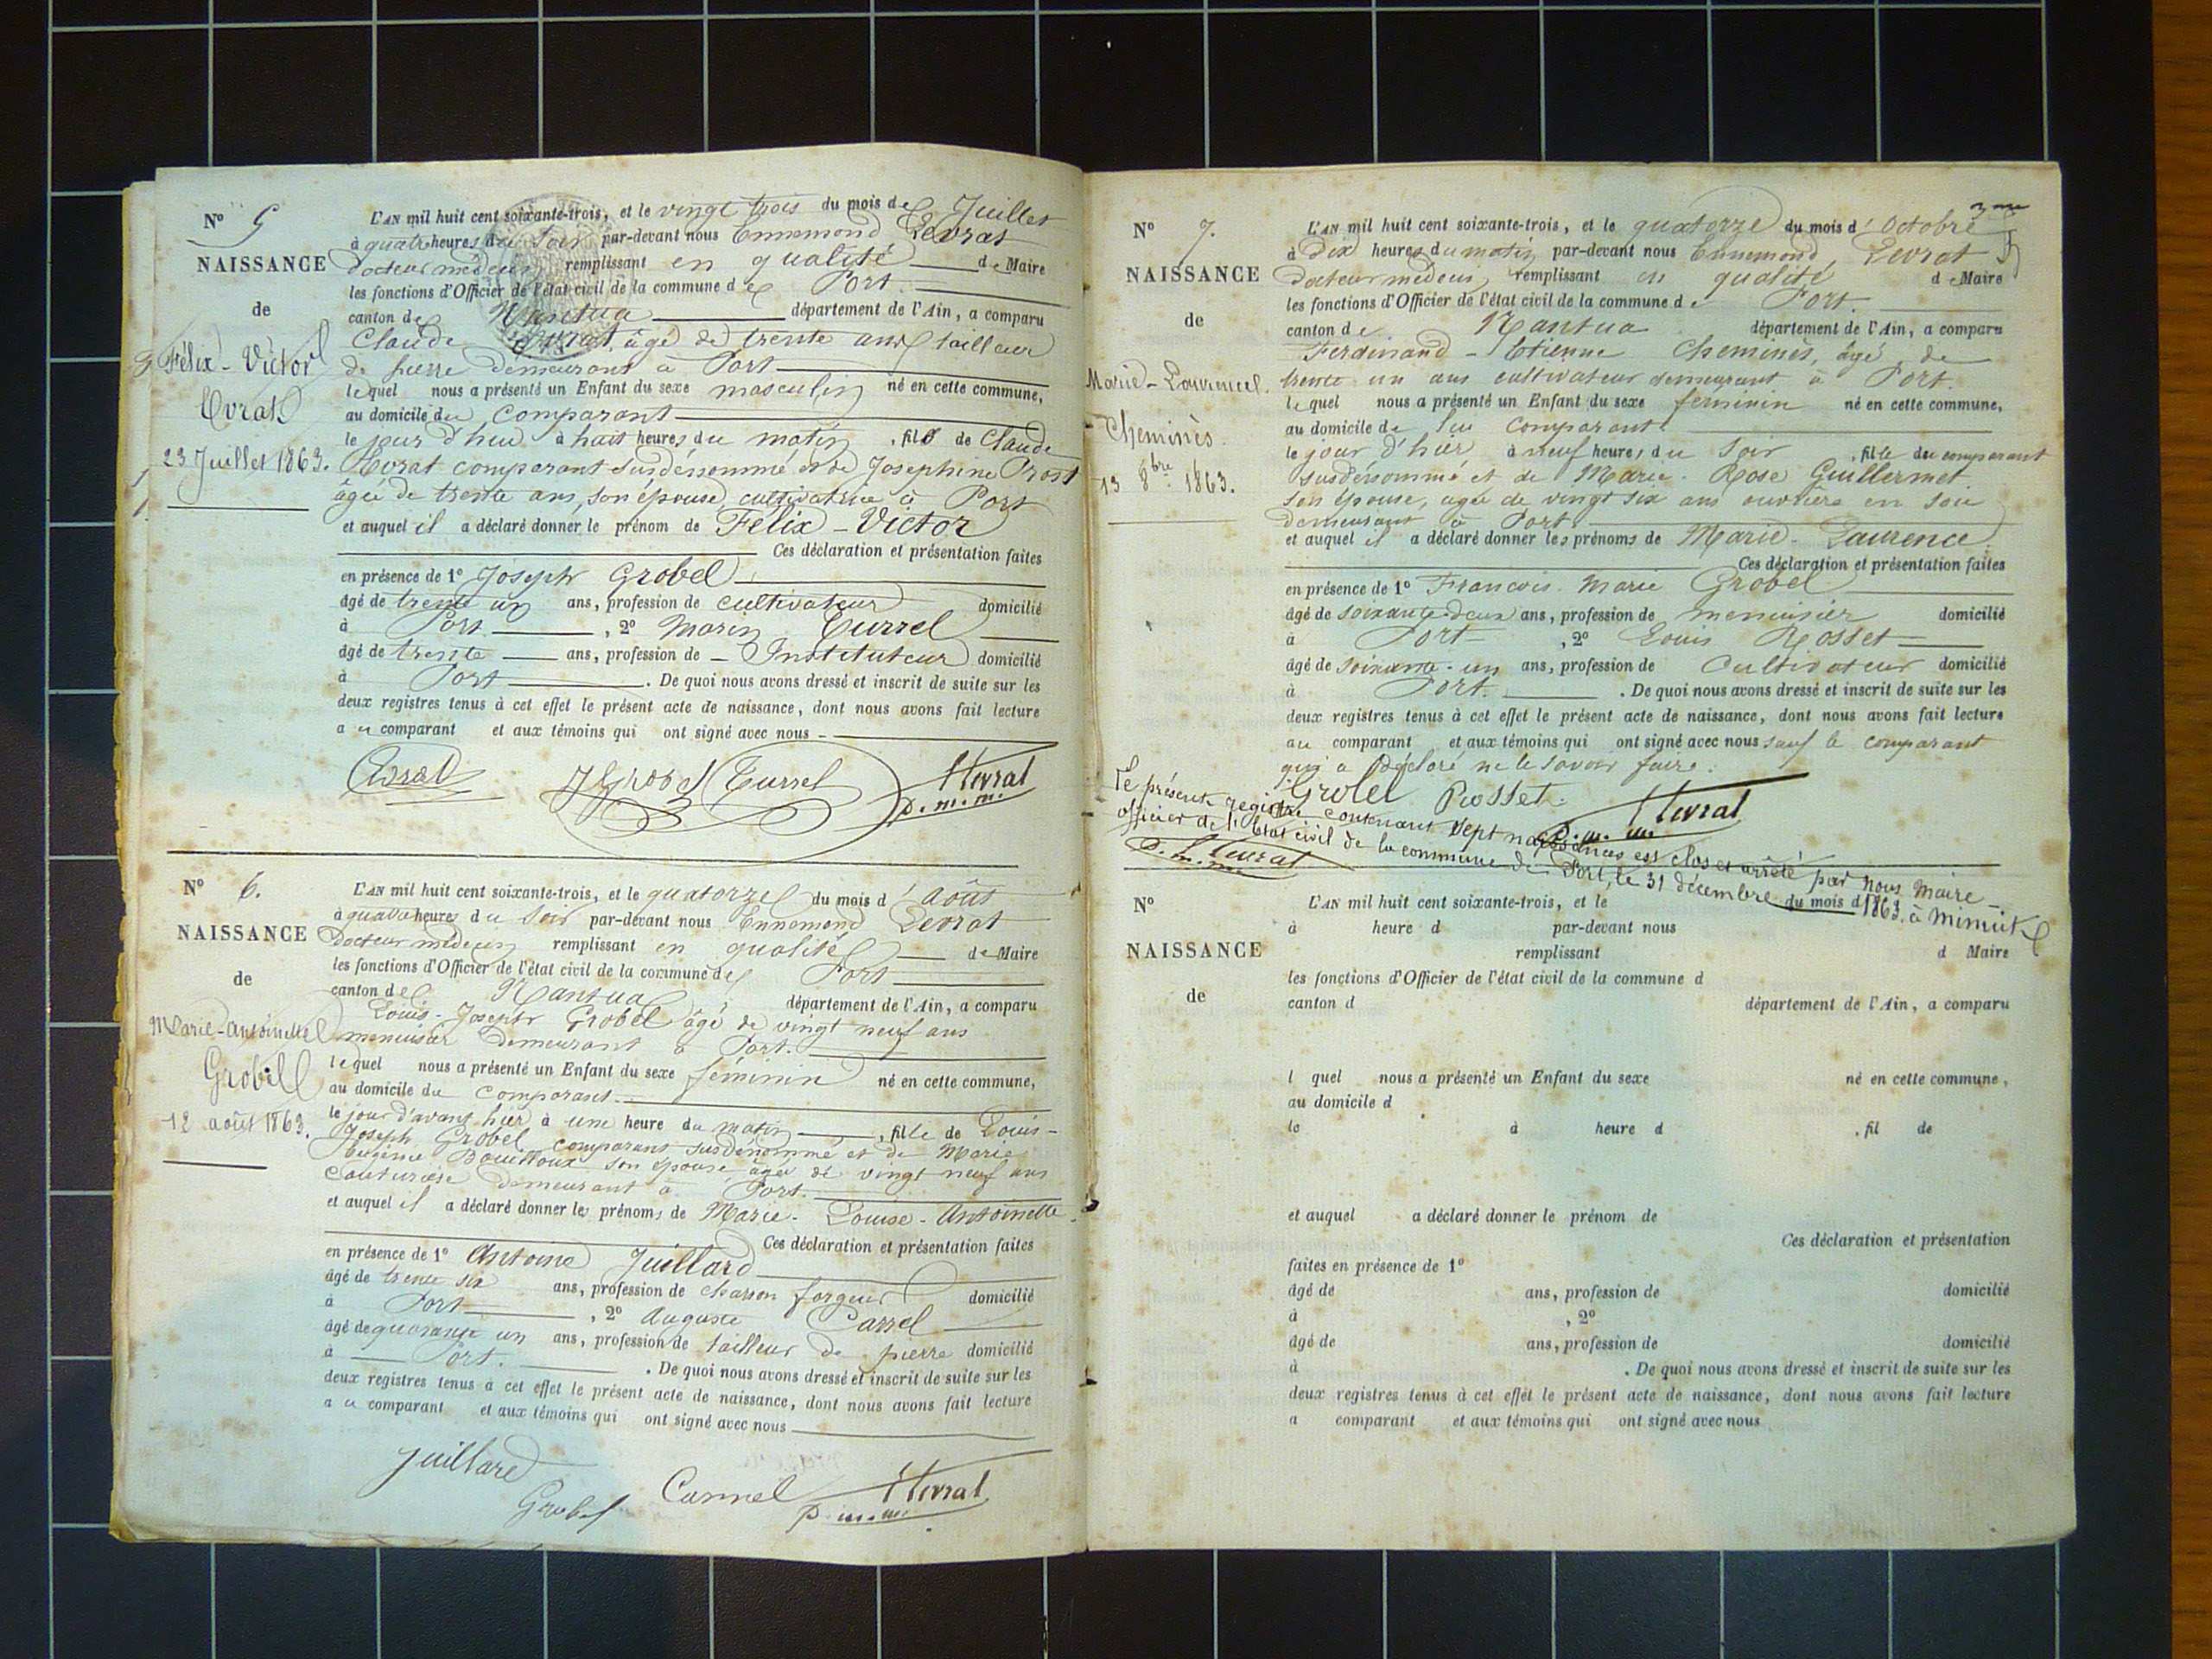 N° 5
NAISSANCE
de
Félix-Victor
Evrat
23 Juillet 1863.
L'AN mil huit cent soixante-trois, et le vingt trois du mois de Juillet
à quatre heures du soir par-devant nous Ennemond Levrat
docteur médecin remplissant en qualité de Maire
les fonctions d'Officier de l'état civil de la commune de Port
canton de Nantua département de l'Ain, a comparu
Claude Evrat, âgé de trente ans tailleur
de pierre demeurant à Port
lequel nous a présenté un Enfant du sexe masculin né en cette commune,
au domicile du comparant
le jour d'hui à huit heures du matin, fils de Claude
Evrat comparant susdénommé et de Josephine Prost
âgée de trente ans, son épouse, cultivatrice à Port
et auquel il a déclaré donner le prénom de Félix-Victor
Ces déclaration et présentation faites
en présence de 1° Joseph Grobel
âgé de trente un ans, profession de cultivateur domicilié
à Port, 2° Marin Turrel
âgé de trente ans, profession de Instituteur domicilié
à Port. De quoi nous avons dressé et inscrit de suite sur les
deux registres tenus à cet effet le présent acte de naissance, dont nous avons fait lecture
au comparant et aux témoins qui ont signé avec nous
Evrat J Grobel Turrel Levrat
D. m. m.
N° 6.
NAISSANCE
de
Marie-Antoinette
Grobel
12 août 1863.
L'AN mil huit cent soixante-trois, et le quatorze du mois d'Août
à quatre heures du soir par-devant nous Ennemond Levrat
docteur médecin remplissant en qualité de Maire
les fonctions d'Officier de l'état civil de la commune de Port
canton de Nantua département de l'Ain, a comparu
Louis-Joseph Grobel âgé de vingt neuf ans
menuisier demeurant à Port.
lequel nous a présenté un Enfant du sexe féminin né en cette commune,
au domicile du comparant.
le jour d'avant hier à une heure du matin, fille de Louis-
Joseph Grobel comparant susdénommé et de Marie
Eugénie Bouilloux son épouse âgée de vingt neuf ans
couturière demeurant à Port.
et auquel il a déclaré donner les prénoms de Marie-Louise-Antoinette.
Ces déclaration et présentation faites
en présence de 1° Antoine Juillard
âgé de trente six ans, profession de charron forgeur domicilié
à Port, 2° Auguste Carrel
âgé de quarante un ans, profession de tailleur de pierre domicilié
à Port. De quoi nous avons dressé et inscrit de suite sur les
deux registres tenus à cet effet le présent acte de naissance, dont nous avons fait lecture
au comparant et aux témoins qui ont signé avec nous
Juillard
Grobel Levrat
D. m. m.
N° 7.
NAISSANCE
de
Marie-Laurence
Cheminès.
13 8bre 1863.
L'AN mil huit cent soixante-trois, et le quatorze du mois d'Octobre
à Dix heures du matin par-devant nous Ennemond Levrat
docteur médecin remplissant en qualité de Maire
les fonctions d'Officier de l'état civil de la commune de Port.
canton de Nantua département de l'Ain, a comparu
Ferdinand-Etienne Cheminès, âgé de
trente un ans cultivateur demeurant à Port.
lequel nous a présenté un Enfant du sexe feminin né en cette commune,
au domicile de lui comparant
le jour d'hier à neuf heures du soir, fille du comparant
susdénommé et de Marie-Rose Guillermet
son épouse, âgée de vingt six ans ouvrière en soie
demeurant à Port.
et auquel il a déclaré donner les prénoms de Marie-Laurence
Ces déclaration et présentation faites
en présence de 1° François-Marie Grobel
âgé de soixante-deux ans, profession de menuisier domicilié
à Port, 2° Louis Rosset
âgé de soixante-un ans, profession de Cultivateur domicilié
à Port. De quoi nous avons dressé et inscrit de suite sur les
deux registres tenus à cet effet le présent acte de naissance, dont nous avons fait lecture
au comparant et aux témoins qui ont signé avec nous sauf le comparant
qui a déclaré ne le savoir faire.
Grobel Rosset Levrat
D. m. m.
Le présent registre contenant sept naissances est clos et arrêté par nous Maire
officier de l'Etat civil de la commune de Port, le 31 décembre 1863. à minuit
Levrat
D. m. m.
N°
NAISSANCE
de
L'AN mil huit cent soixante-trois, et le du mois d
à heure d par-devant nous
remplissant d Maire
les fonctions d'Officier de l'état civil de la commune d
canton d département de l'Ain, a comparu
l quel nous a présenté un Enfant du sexe né en cette commune,
au domicile d
le à heure d , fil de
et auquel a déclaré donner le prénom de
Ces déclaration et présentation
faites en présence de 1°
âgé de ans, profession de domicilié
à , 2°
âgé de ans, profession de domicilié
à . De quoi nous avons dressé et inscrit de suite sur les
deux registres tenus à cet effet le présent acte de naissance, dont nous avons fait lecture
a comparant et aux témoins qui ont signé avec nous